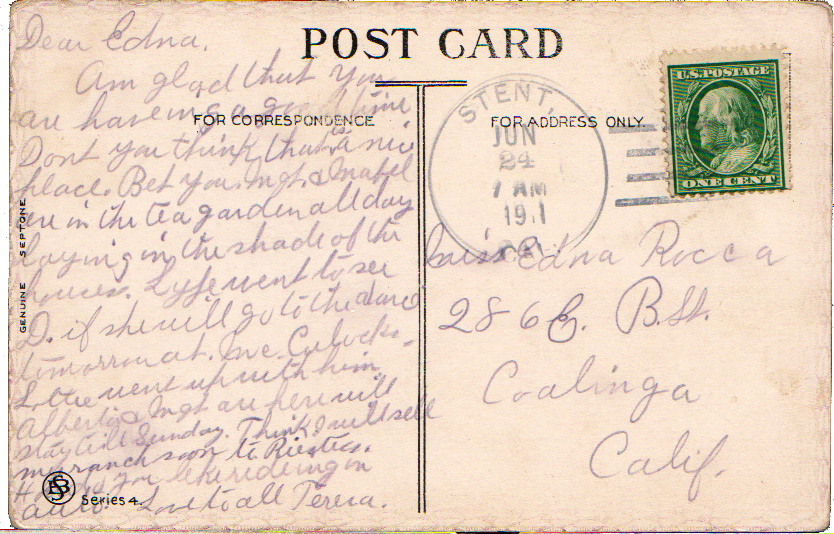 POST CARD
FOR CORRESPONDENCE
FOR ADDRESS ONLY
GENUINE SEPTONE
Dear Edna.
Am glad that you
are haveing a good time
Dont you think that is a nice
place. Bet you. Mgt. & Mabel
are in the tea garden all day
laying in the shade of the
houses. went to see
D. if she will go to the dance
tomorrow at
went up with him
Alberta & Mgt are here will
stay till Sunday. Think I will sell
my ranch soon to
How do you like rideing in
auto. Love to all Teresa.
BSB
Series 4.
STENT,
JUN
24
7 AM
191
CAL.
U.S. POSTAGE
ONE CENT
Miss Edna Rocca
286 E. B. St.
Coalinga
Calif.